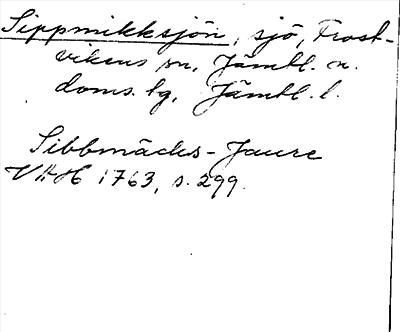 Sippmikksjön, sjö, Frost-
vikens sn, Jämtl. n.
doms. tg, Jämtl. l.
Sibbmäcks-Jaure
VHH 1763, s. 299.